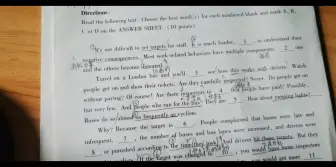 Directions:
Read the following text. Choose the best word(s) for each numbered blank and mark A, B,
C or D on the ANSWER SHEET. (10 points)
It's not difficult to set targets for staff. It is much harder, 1 , to understand their
negative consequences. Most work-related behaviors have multiple components. 2 one
and the others become distorted.
Travel on a London bus and you'll 3 see how this works with drivers. Watch
people get on and show their tickets. Are they carefully inspected? Never. Do people get on
without paying? Of course! Are there inspectors to 4 that people have paid? Possibly,
but very few. And people who run for the bus? They are 5 . How about running lights?
Buses do so almost as frequently as cyclists.
Why? Because the target is 6 . People complained that buses were late and
infrequent. 7 , the number of buses and bus lanes were increased, and drivers were
8 or punished according to the time they took. And drivers hit those targets. But they
If the target was changed 10 , you would have more inspectors